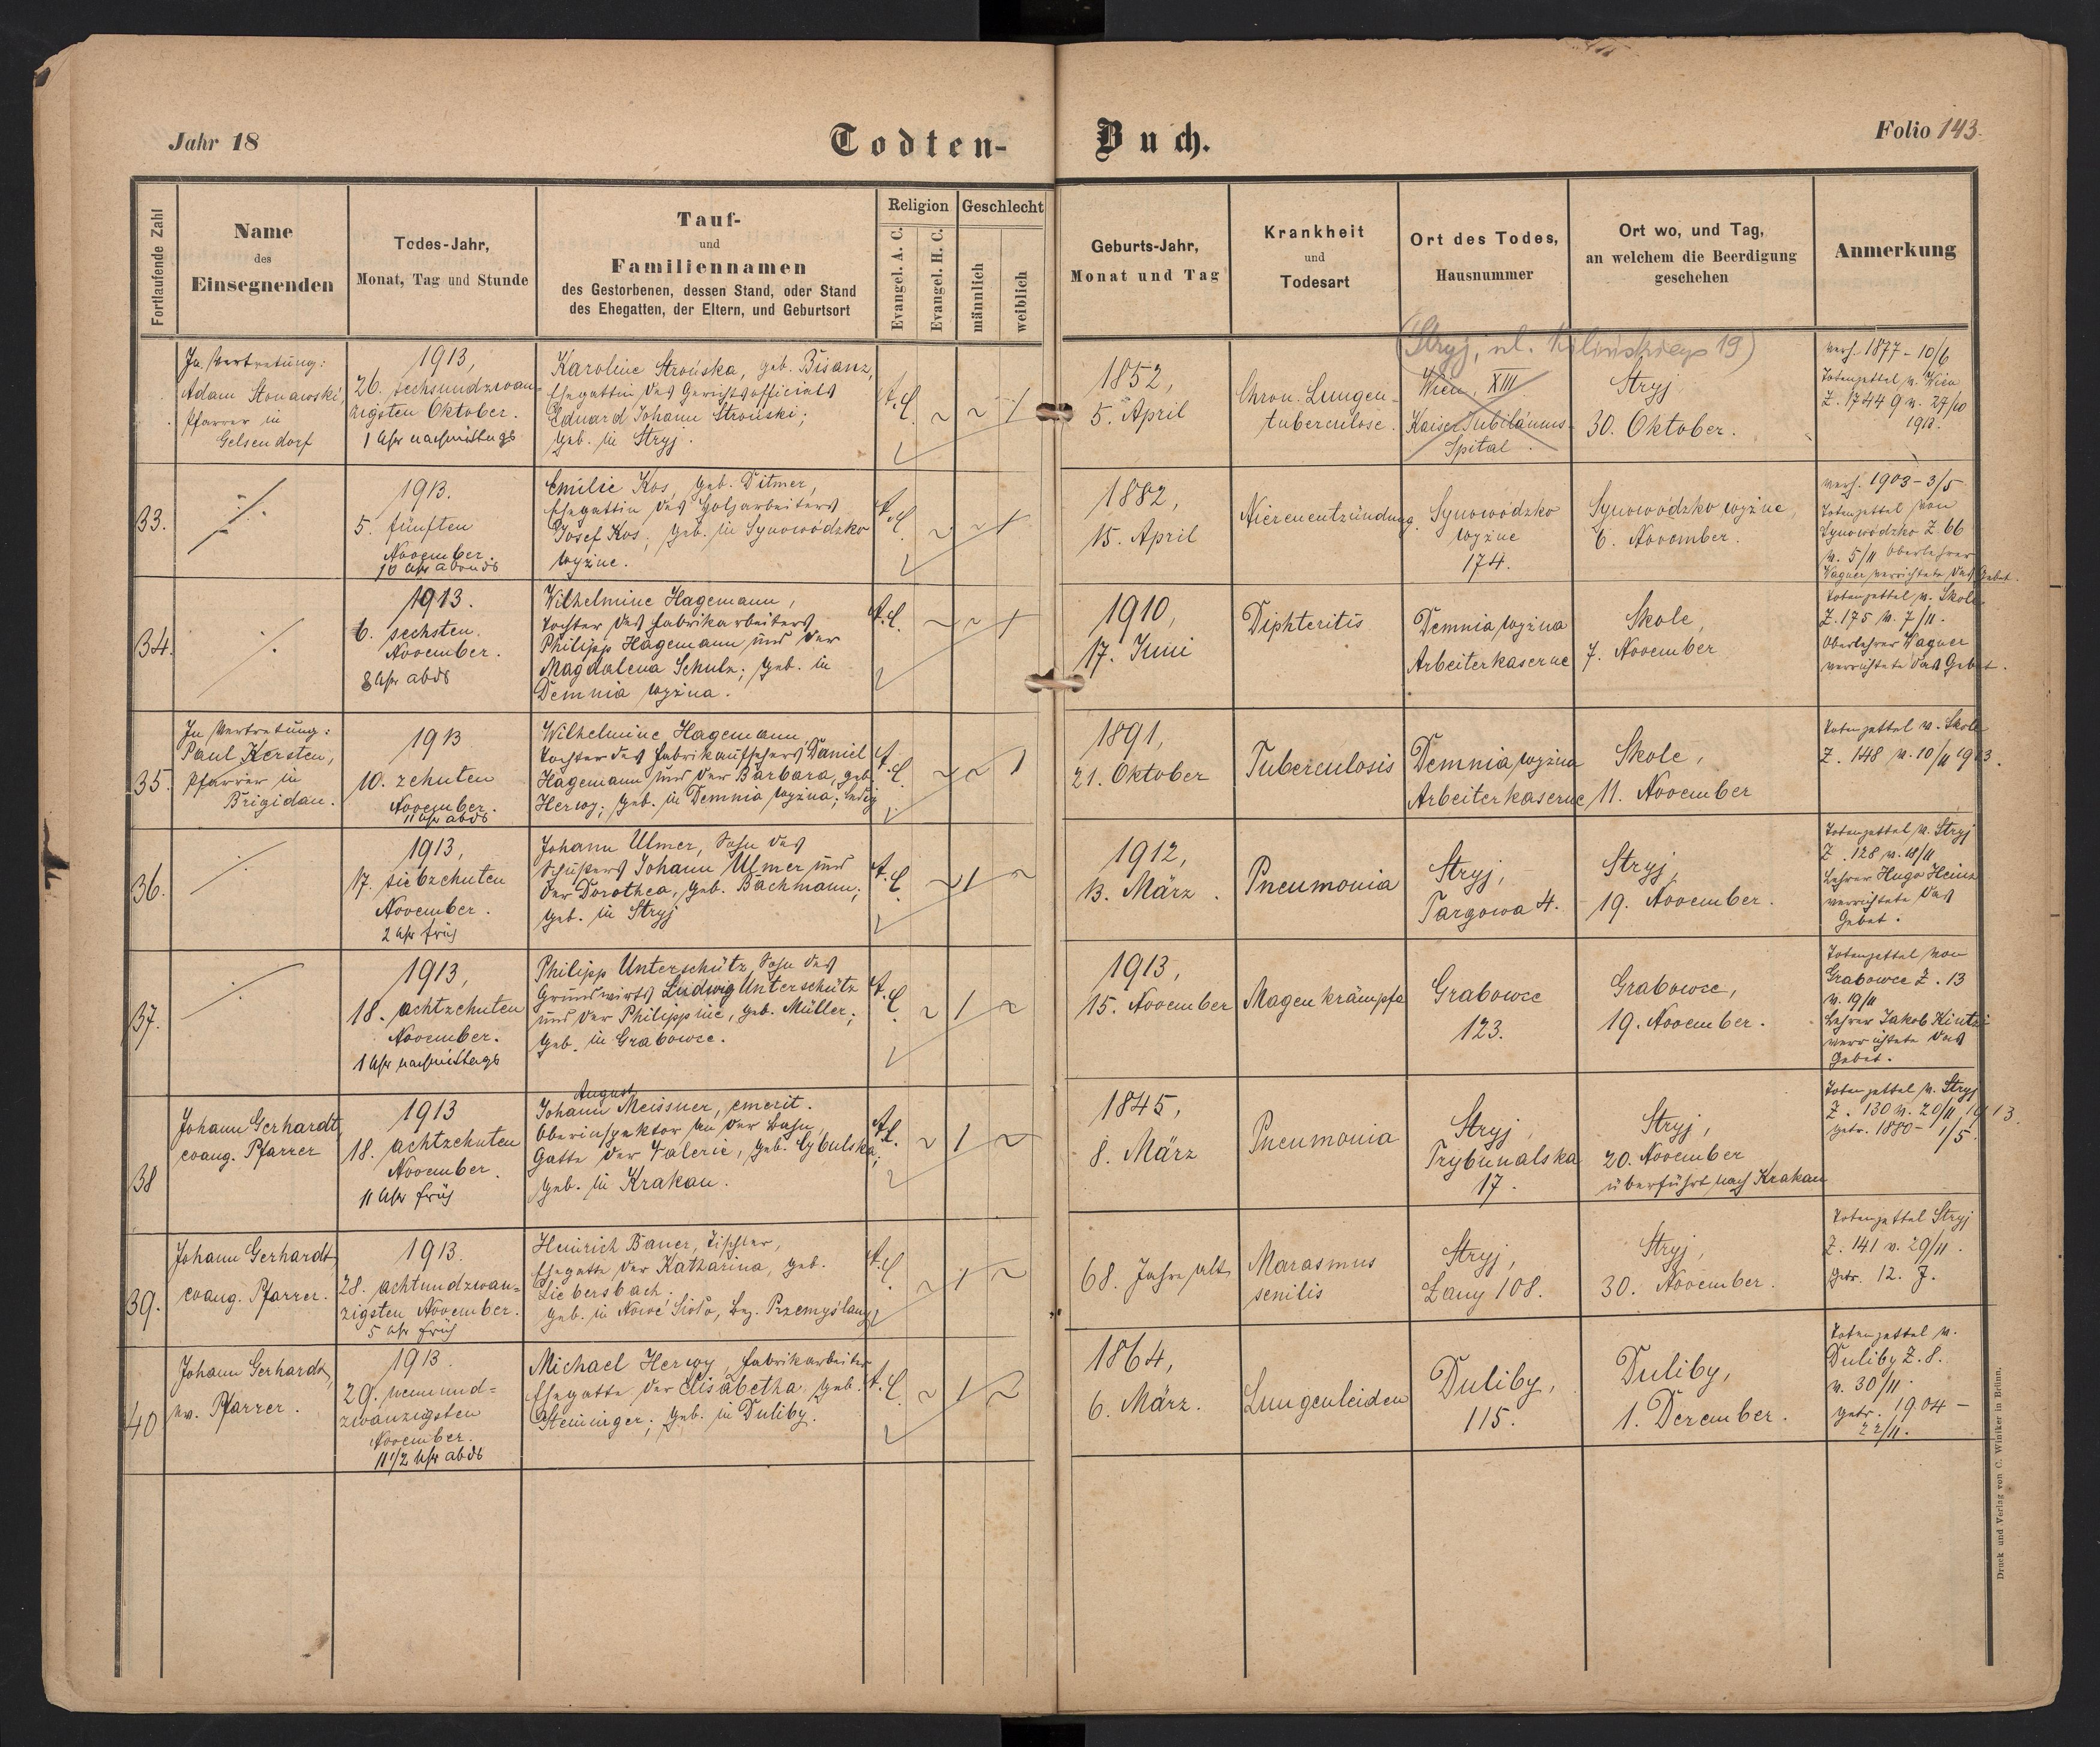 Jahr 18
Todten-
Buch.
Folio 143.
Fortlaufende Zahl
Name
des
Einsegnenden
Todes-Jahr,
Monat, Tag und Stunde
Tauf-
und
Familiennamen
des Gestorbenen, dessen Stand, oder Stand
des Ehegatten, der Eltern, und Geburtsort
Religion
Evangel. A. C.
Evangel. H. C.
Geschlecht
männlich
weiblich
Geburts-Jahr,
Monat und Tag
Krankheit
und
Todesart
Ort des Todes,
Hausnummer
Ort wo, und Tag,
an welchem die Beerdigung
geschehen
Anmerkung
In Vertretung:
Adam Stonawski,
Pfarrer in
Gelsendorf
1913,
26. sechsundzwan-
zigsten Oktober.
1 Uhr nachmittags
Karoline Strońska, geb. Bisanz,
Ehegattin des Gerichtsofficials
Eduard Johann Stroński;
geb. in Stryj.
A.C. ~ ~ 1
1852,
5. April
Chron. Lungen-
tuberculose.
(Stryj, ul. Kilińskiego 19)
Wien, XIII
Kaiser Jubiläums-
Spital.
Stryj
30. Oktober.
verh. 1877 - 10/6
Totenzettel v. Wien
Z. 17449 v. 27/10
1913.
33.
1913.
5. fünften
November.
10 Uhr abends
Emilie Kos, geb. Ditmer,
Ehegattin des Holzarbeiters
Josef Kos; geb. in Synowódzko
wyżne.
A.C. ~ ~ 1
1882,
15. April
Nierenentzündung.
Synowódzko
wyżne
174.
Synowódzko wyżne,
6. November.
verh. 1903 - 3/5
Totenzettel von
Synowódzko Z. 66
v. 5/11 Oberlehrer
Wagner verrichtete das Gebet.
34.
1913.
6. sechsten
November.
8 Uhr abds
Wilhelmine Hagemann,
Tochter des Fabrikarbeiters
Philipp Hagemann und der
Magdalena Schulz; geb. in
Demnia wyżna.
A.C. ~ ~ 1
1910,
17. Juni
Diphteritis
Demnia wyżna
Arbeiterkaserne
Skole,
7. November
Totenzettel v. Skole
Z. 175 v. 7/11.
Oberlehrer Wagner
verrichtete das Gebet.
35.
In Vertretung:
Paul Kersten,
Pfarrer in
Brigidau.
1913
10. zehnten
November.
11 Uhr abds
Wilhelmine Hagemann,
Tochter des Fabrikaufsehers Daniel
Hagemann und der Barbara, geb.
Herwy; geb. in Demnia wyżna; ledig
A.C. ~ ~ 1
1891,
21. Oktober
Tuberculosis
Demnia wyżna
Arbeiterkaserne
Skole,
11. November
Totenzettel v. Skole
Z. 148 v. 10/11 1913.
36.
1913,
17. siebzehnten
November.
2 Uhr früh
Johann Ulmer, Sohn des
Schusters Johann Ulmer und
der Dorothea, geb. Bachmann;
geb. in Stryj
A.C. ~ 1 ~
1912,
13. März.
Pneumonia
Stryj,
Targowa 4.
Stryj,
19. November.
Totenzettel v. Stryj
Z. 128 v. 18/11
Lehrer Hugo Heinz
verrichtete das
Gebet.
37.
1913,
18. achtzehnten
November.
1 Uhr nachmittags
Philipp Unterschütz, Sohn des
Grundwirts Ludwig Unterschütz
und der Philippine, geb. Müller;
geb. in Grabowce.
A.C. ~ 1 ~
1913,
15. November
Magenkrämpfe
Grabowce
123.
Grabowce,
19. November.
Totenzettel von
Grabowce Z. 13
v. 19/11
Lehrer Jakob Kintzi
verrichtete das
Gebet.
38
Johann Gerhardt,
evang. Pfarrer
1913
18. achtzehnten
November.
11 Uhr früh
August
Johann Meissner, emerit.
Oberinspektor an der Bahn,
Gatte der Valerie, geb. Cybulska;
geb. in Krakau.
A.C. ~ 1 ~
1845,
8. März
Pneumonia
Stryj,
Trybunalska
17.
Stryj,
20. November
überführt nach Krakau
Totenzettel v. Stryj
Z. 130 v. 20/11 1913.
getr. 1880 - 1/5.
39.
Johann Gerhardt
evang. Pfarrer.
1913.
28. achtundzwan-
zigsten November.
5 Uhr früh
Heinrich Bauer, Tischler,
Ehegatte der Katharina, geb.
Liebersbach;
geb. in Nowe Sioło, Bez. Przemyślany
A.C. ~ 1 ~
68. Jahre alt
Marasmus
senilis
Stryj,
Łany 108.
Stryj,
30. November.
Totenzettel Stryj
Z. 141 v. 29/11.
40
Johann Gerhardt,
ev. Pfarrer.
1913.
29. neunund-
zwanzigsten
November.
11 1/2 Uhr abds
Michael Herwy, Fabrikarbeiter
Ehegatte der Elisabetha geb.
Steininger; geb. in Duliby.
A.C. ~ 1 ~
1864,
6. März.
Lungenleiden
Duliby,
115.
Duliby,
1. Dezember.
Totenzettel v.
Duliby Z. 8.
v. 30/11.
getr. 1904 -
22/11.
Druck und Verlag von C. Winiker in Brünn.